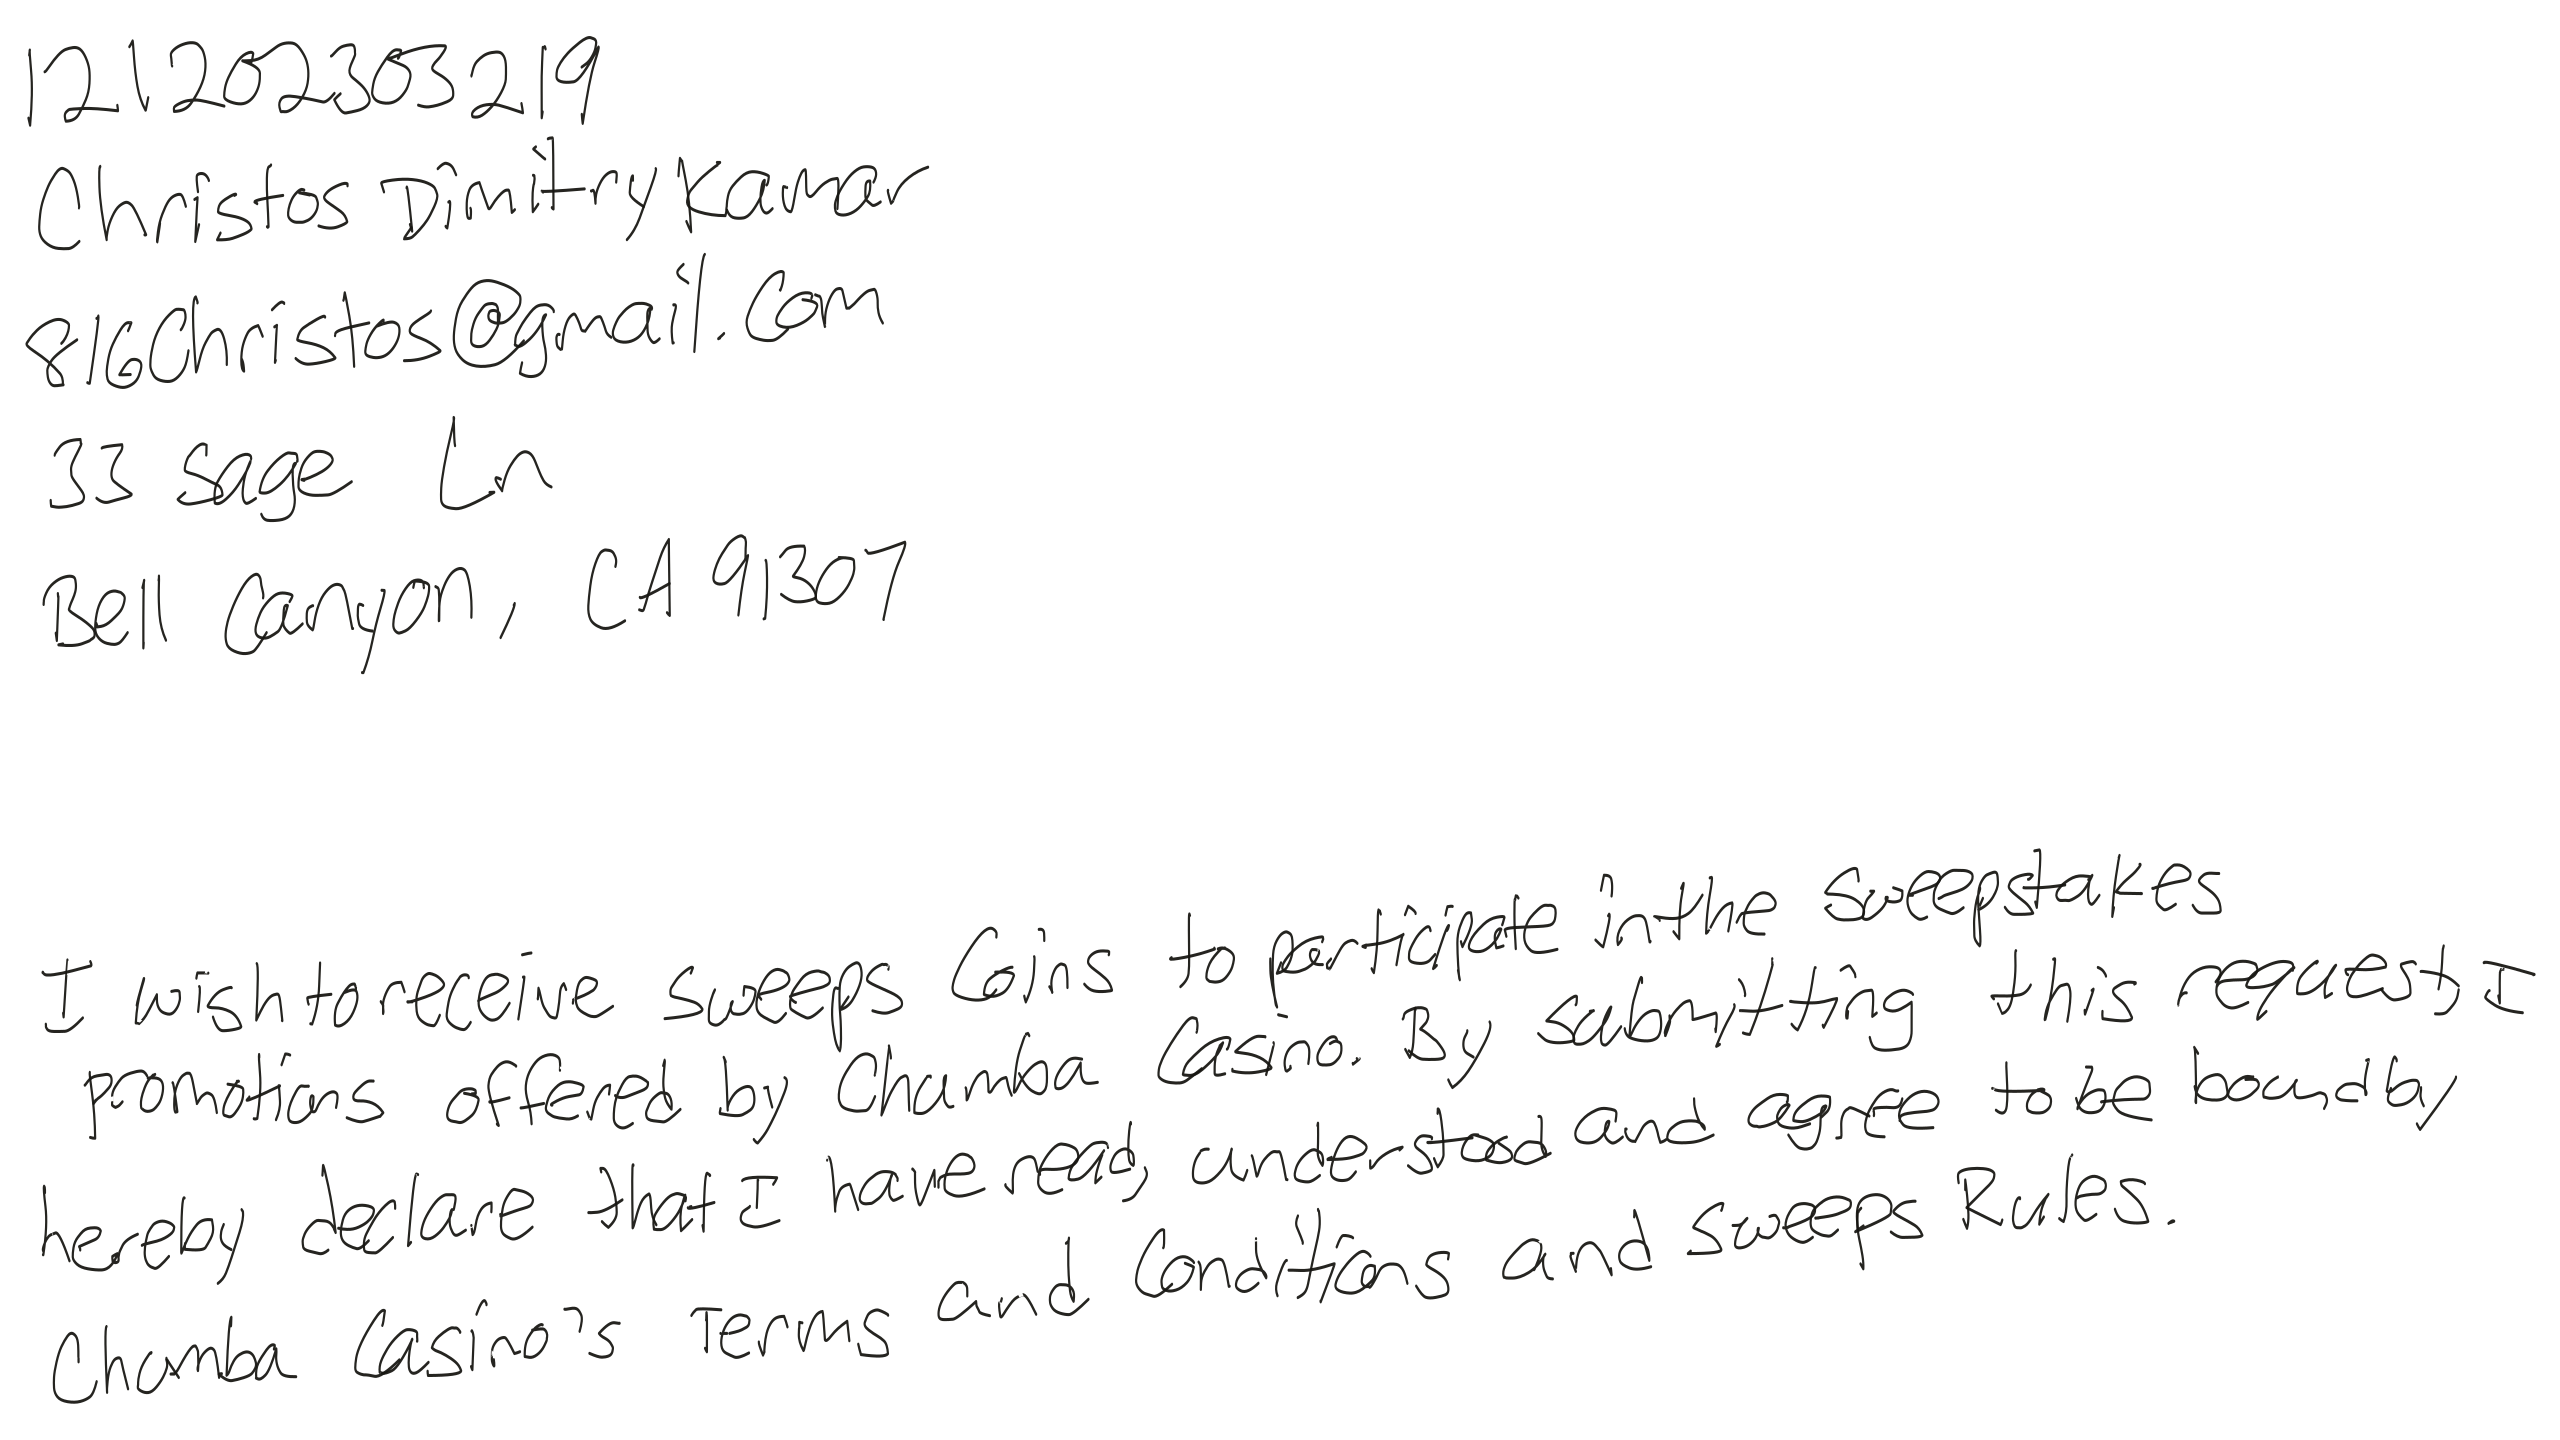 121202303219
Christos Dimitry Kamar
816Christos@gmail.com
33 Sage Ln
Bell Canyon, CA 91307
I wish to receive sweeps Coins to participate in the sweepstakes
promotions offered by Chumba Casino. By submitting this request, I
hereby declare that I have read, understood and agree to be bound by
Chumba Casino's Terms and Conditions and Sweeps Rules.